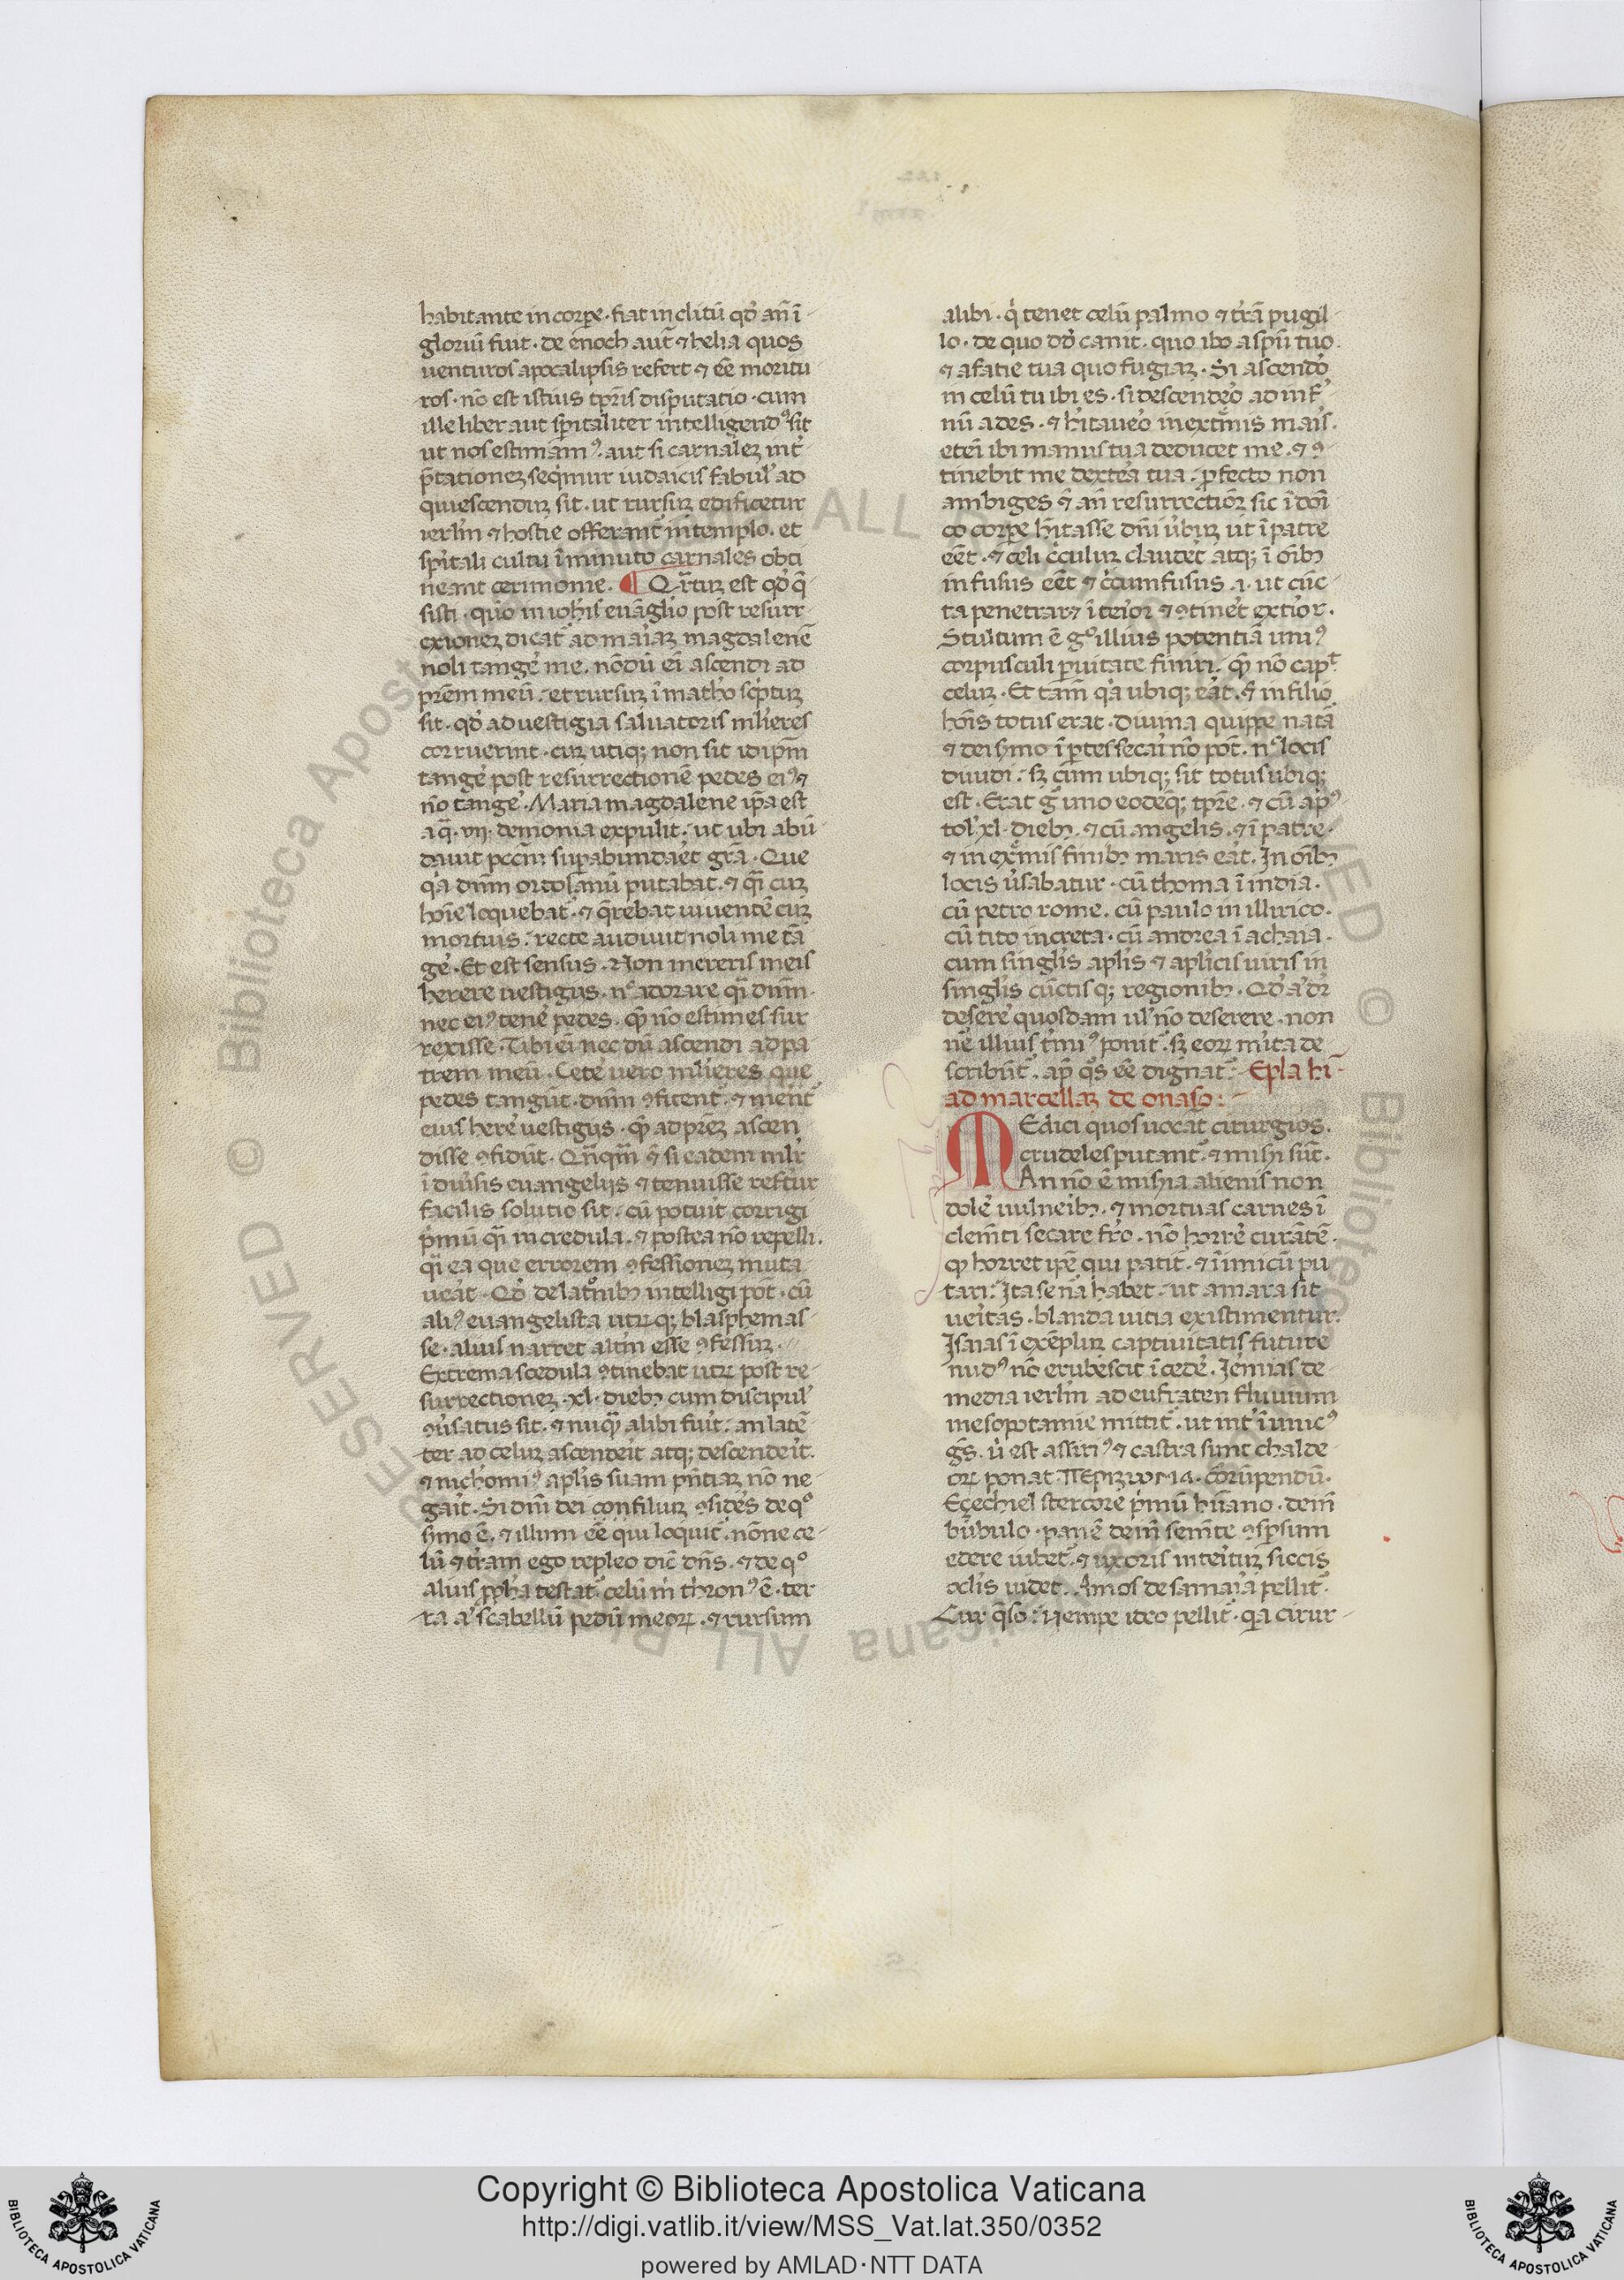 habitante in corpe · fiat inclitũ qđ añ ĩ
gloriũ fuit · de enoch aut̃ ⁊ helia quos
uenturos apocalipsis refert ⁊ eẽ moritu
ros · nõ est istius tp̃ris disputatio · cum
ille liber aut spitaliter intelligendꝰ sit
ut nos estimamꝰ · aut si carnalez int̾
p̃tationez seq̃mur iudaicis fabul̾ ad
quiescendũ sit · ut rursuz edificetur
ierlm̃ ⁊ hostie offerant̃ in templo · et
sp̃itali cultu ĩminuto carnales obti
neant cerimonie . ¶ Q̃rtuz est qđ q̃
sisti · quõ in ioh̃is euãglio post resurr
exionez dicat̃ ad mãiaz magdalenẽ
noli tange̾ me . nõdũ eĩ ascendi ad
prẽm meũ · et rursuz ĩ matho sc̾ptuz
sit . qđ ad uestigia saluatoris ml̾ieres
corruerint · cuz utiq; non sit idip̃m
tange̾ post resurrectionẽ pedes eiꝰ ⁊
nõ tange̾ . Maria magdalene ip̃a est
a q̃ . vii · demonia expulit · ut ubi abũ
dauit pcc̃m suꝑabundaẽt gr̃a · Que
q̾a dñm ortolanũ putabat · ⁊ q̃i cuz
hoĩe loquebat̃ · ⁊ q̃rebat uiuentẽ cuz
mortuis · recte audiuit noli me tã
ge̾ · Et est sensus . Non mereris meis
herere uestigijs . n͛ adorare q̃i dñm ·
nec eiꝰ tene̾ pedes . qꝫ nõ estimes sur
rexisse · Tibi eĩ nec dũ ascendi ad pa
trem meũ · Cete̾ uero ml̾ieres que
pedes tangũt · dñm ꝯfitent̃ · ⁊ ment̃
eius here̾ uestigijs · qꝫ ad prẽz ascen
disse ꝯfidũt · Qñqm̃ ⁊ si eadem ml̾r
ĩ diũsis euangelijs ⁊ tenuisse refert̃ur
facilis solutio sit · cũ potuit corrigi
p̾mũ q̃i incredula · ⁊ postea nõ repelli .
q̃i ea que errorem ꝯfessionez muta
ueãt · Qđ de lat̃oñibꝫ intelligi põt · cũ
aliꝰ euangelista utrũq; blasphemas
se · alius narret altm̃ esse ꝯfessuz ·
Extrema scedula ꝯtinebat utꝝ post re
surrectionez · xl · diebꝫ cum discipul̾
ꝯũsatus sit · ⁊ nũqꝫ alibi fuit · an latẽ
ter ad celuz ascendeĩt atq; descendeĩt .
⁊ nichomiꝰ aplĩs suam p̃ntiaz nõ ne
gaĩt · Si dñi dei con filiuz ꝯsides̾ de qͦ
s̾mo ẽ . ⁊ illum eẽ qui loquit̃ . nõne ce
lũ ⁊ tr̃am ego repleo dic̃ dñs . ⁊ de qͦ
alius ꝓph̃a testat̃ celũ m̾ thronꝰ ẽ · ter
ra a̾ scabellũ pedũ meoꝝ . ⁊ rursum
alibi . q̾ tenet celũ palmo ⁊ tr̃ã pugil
lo · de quo dđ canit . quo ibo a sp̃ũ tuo
⁊ a fatie tua quo fugiaz · Si ascendo̾
in celũ tu ibi es · si descendeo̾ ad inf̾
nũ ades . ⁊ h̾itaueo̾ in ext̃mis mais̾ .
eteĩ ibi manus tua deducet me . ⁊ ꝯ
tinebit me dextea̾ tua · ꝓfecto non
ambiges ⁊ añ resurrectiõz sic ĩ doĩ
co corpe h̃itasse dñi ũbuz ut ĩ patre
eẽt · ⁊ celi c̾culuz claudet̾ atq; ĩ oĩbꝫ
infusus eẽt ⁊ c̾cumfusus .i. ut cũc
ta penetrar⁊ ĩteior̾ ⁊ ꝯtinet̾ extior̾ .
Stultum ẽ gͦ illius potentiã uniꝰ
corpusculi ꝑuitate finiri · qꝫ nõ capᵗ
celuz . Et tam̃ q̾a ubiq; eat̾ . ⁊ in filio
hoĩs totus erat · diuina quippe nat̃a
⁊ dei s̾mo ĩ ꝑtes secaĩ nõ põt . n͛ locis
diuidi · sꝫ cum ubiq; sit totus ubiq;
est . Erat g̾ uno eodẽq; tp̃re · ⁊ cũ apꝰ
tol̾ xl · diebꝫ · ⁊ cũ angelis . ⁊ ĩ patre ·
⁊ in ext̃mis finibꝫ maris eat̾ . In oĩbꝫ
locis ũsabatur · cũ thoma ĩ india .
cũ petro rome . cũ paulo in illirico .
cũ tito in creta · cũ andrea ĩ achaia .
cum singlis̾ aplis̃ ⁊ aplicis̃ uiris in
singlis̾ cũctis q; regionibꝫ . Qđ a̾ dr̃
desere̾ quosdam ul̾ nõ deserere . non
ne illius t̾miꝰ ponit̃ · sꝫ eoꝝ mĩta de
scribũt̃ · ap̃ q̾s eẽ dignat̃ · Ep̃la hi
ad marcellaz de onaso :
MEdici quos uocãt cirurgios .
crudeles putant̃ · ⁊ mis̾i sũt .
An nõ ẽ mis̾ia alienis non
dole̾ uulneibꝫ̾ . ⁊ mortuas carnes ĩ
clem̃ti secare fr̾o . nõ horre̾ curãtẽ .
qꝫ horret ip̃e qui patit̃ . ⁊ ĩimicũ pu
tari · Ita se nã habet · ut amara sit
ueĩtas . blanda uitia existimentur .
Isaias ĩ exẽpluz captiuitatis future
nudꝰ nõ erubescit ĩcede̾ . Ieͬmias de
media ierlm̃ ad eufraten fluuium
mesopotamie mittit̃ . ut int̾ ĩimicꝰ
g̃s . ũ est assiriꝰ ⁊ castra sunt chalde
oꝝ ponat ΠΕΡΙΖΩΜΑ . corũpendũ .
Ezechiel stercore p̾mũ hũano . dein̄
bũbulo · panẽ dein̄ sem̃te ꝯsp̾sum
edere iubet̃ . ⁊ uxoris inteĩtuz siccis
oclis̃ uidet . Amos de samaĩa pellit̃ .
Cur q̃so : Nempe ideo pellit̃ · q̾a cirur
Copyright © Biblioteca Apostolica Vaticana
http://digi.vatlib.it/view/MSS_Vat.lat.350/0352
powered by AMLAD·NTT DATA